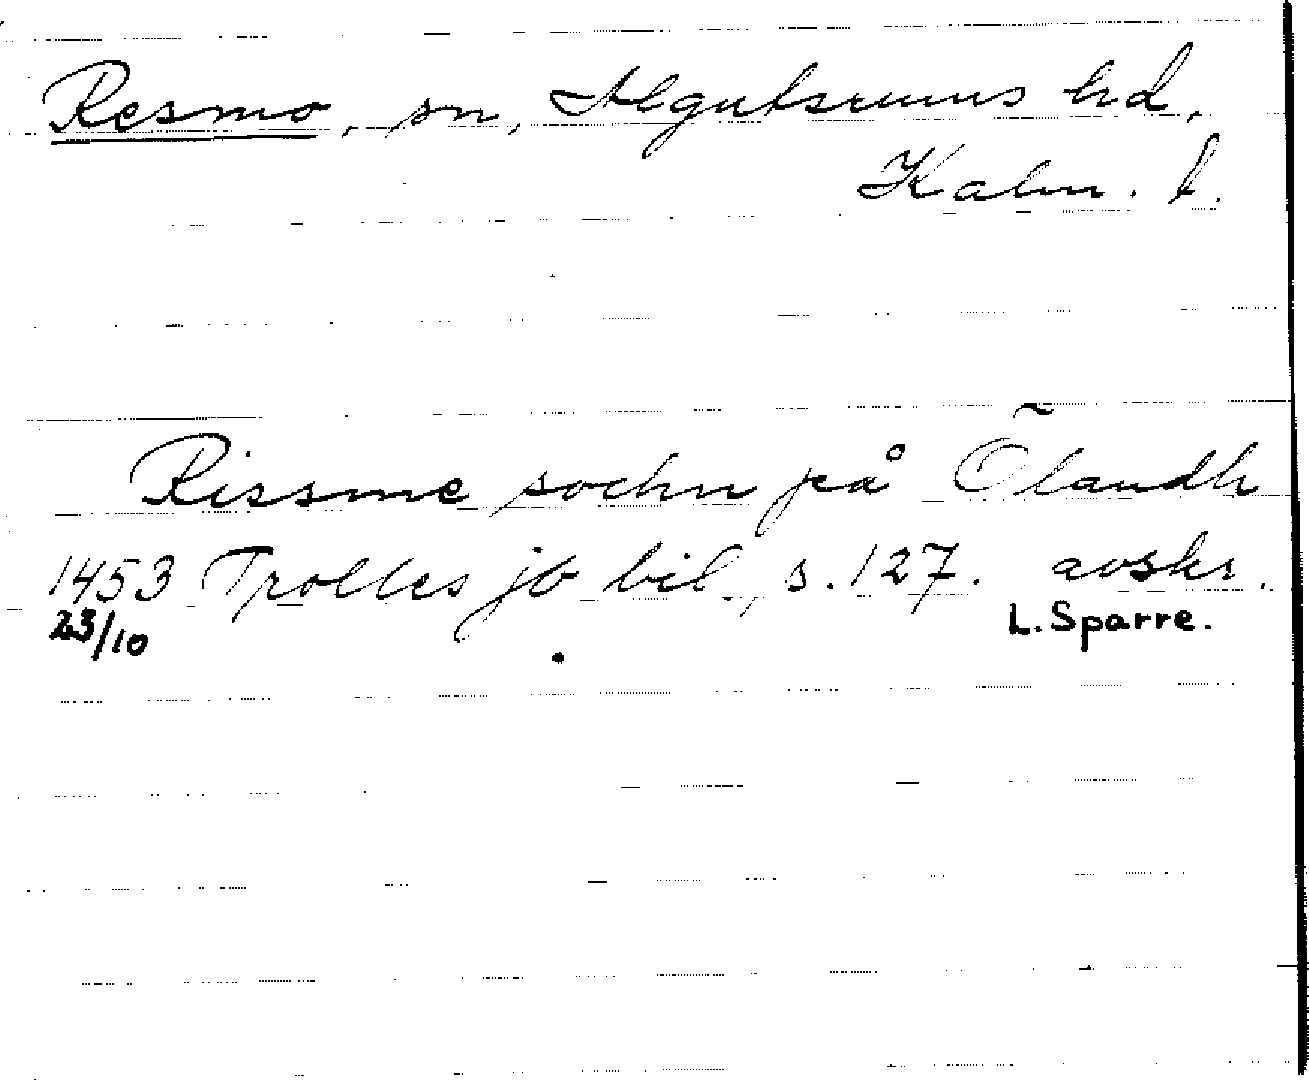 Resmo, sn, Algutsrums hd,
Kalm. l.
Rissme sochn på Õlandh
1453 Trolles jb bil., s. 127. avskr.
23/10 L. Sparre.